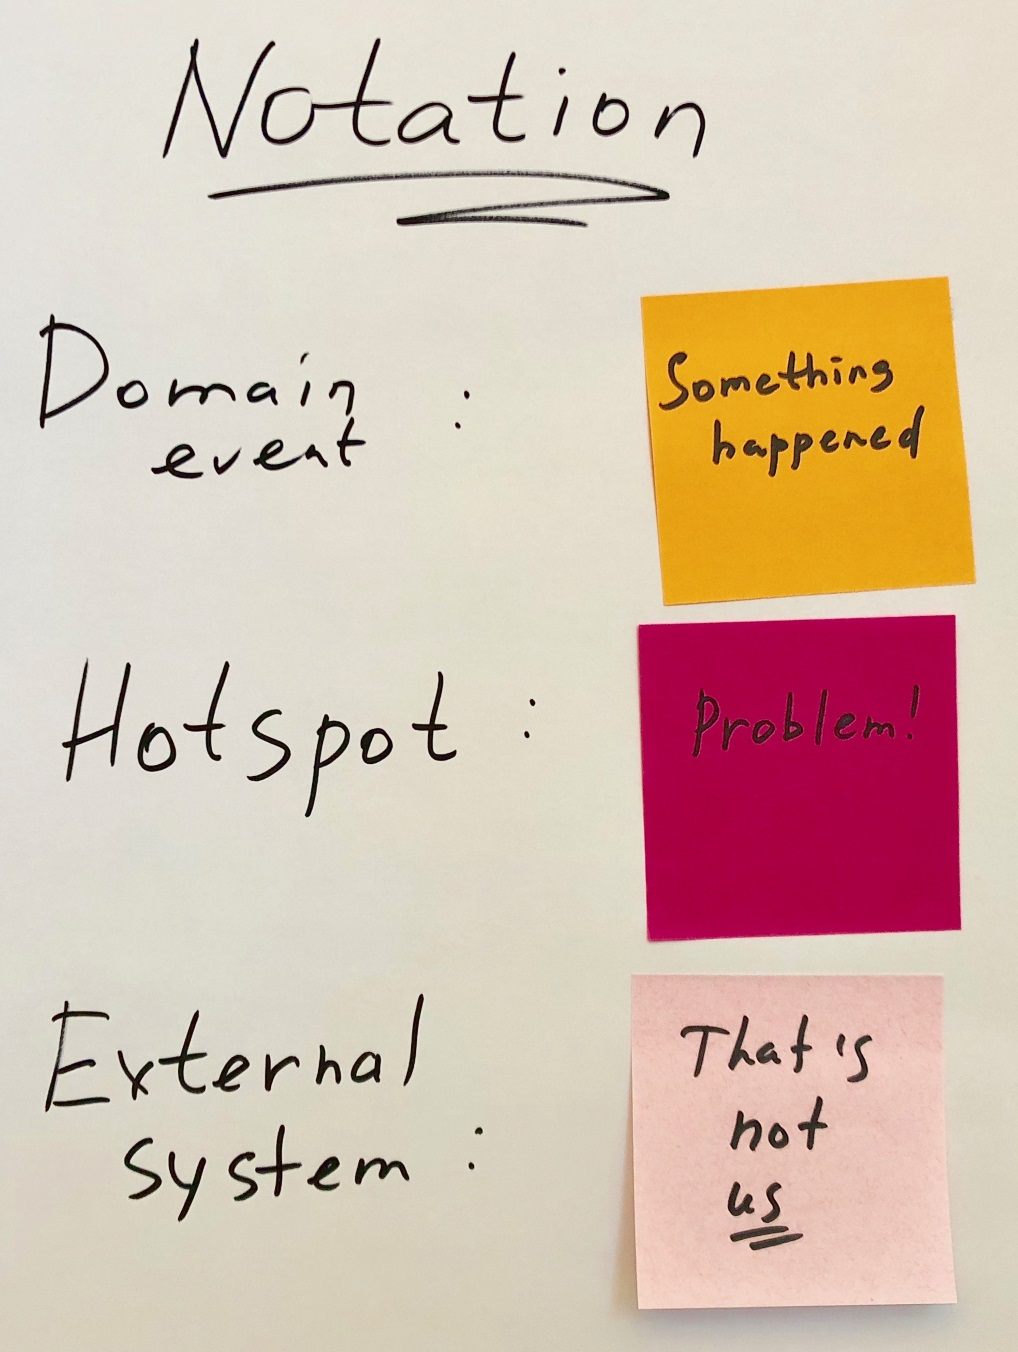 Notation
Domain
event :
Something
happened
Hotspot :
Problem!
External
system :
That is
not
us